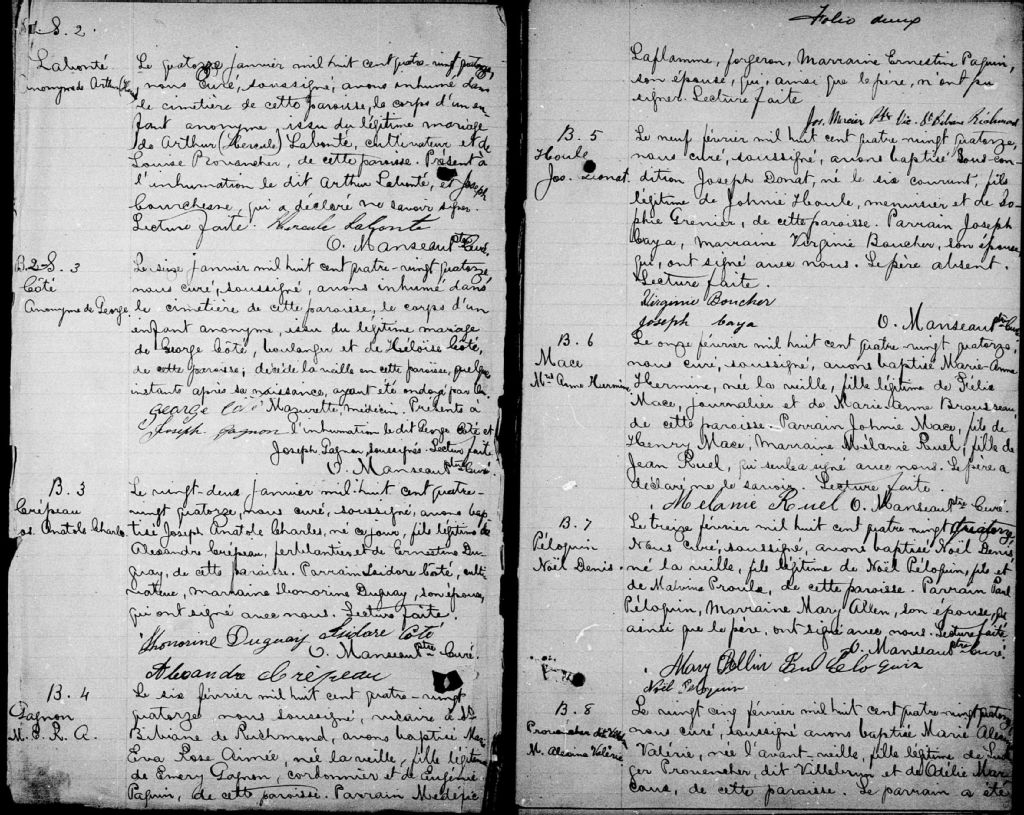 S. 2.
Labonté
anonyme de Arthur
Le quatorze janvier mil huit cent quatre-vingt quatorze,
nous curé, soussigné, avons inhumé dans
le cimetière de cette paroisse, le corps d'un en
fant anonyme, issu du légitime mariage
de Arthur (Hercule) Labonté, cultivateur et de
Louise Provencher, de cette paroisse. Présent à
l'inhumation le dit Arthur Labonté, et Joseph
Courchesne, qui a déclaré ne savoir signer.
Lecture faite. Hercule Labonte
O. Manseau ptre Curé.
B. 2 S. 3
Côté
Anonyme de George
Le seize janvier mil huit cent quatre-vingt quatorze
nous curé, soussigné, avons inhumé dans
le cimetière de cette paroisse, le corps d'un
enfant anonyme, issu du légitime mariage
de George Côté, boulanger et de Héloïse Côté,
de cette paroisse; décédé la veille en cette paroisse, quelques
instants après sa naissance, ayant été ondoyé par
George Coté Mazurette, médecin. Présents à
Joseph gagnon l'inhumation le dit George Côté et
Joseph Gagnon, soussignés. Lecture faite
O. Manseau ptre Curé
B. 3
Crépeau
os. Anatole Charles.
Le vingt-deux janvier mil huit cent quatre-
vingt quatorze, nous curé, soussigné, avons bap
tisé Joseph Anatole Charles, né ce jour, fils légitime de
Alexandre Crépeau, ferblantier et de Ernestine Du
guay, de cette paroisse. Parrain Isidore Côté, culti
vateur, marraine Honorine Duguay, son épouse,
qui ont signé avec nous. Lecture faite.
Honorine Duguay Isidore Coté
O. Manseau ptre Curé.
Alexandre Crépeau
B. 4
Gagnon
M. E. R. A.
Le six février mil huit cent quatre-vingt
quatorze nous soussigné, vicaire à Ste
Bibiane de Richmond, avons baptisé Marie
Eva Rose Aimée, née la veille, fille légitime
de Emery Gagnon, cordonnier et de Eugénie
Paquin, de cette paroisse. Parrain Médéric
Folio deux
Laflamme, forgeron, Marraine Ernestine Paquin,
son épouse, qui, ainsi que le père, n'ont pu
signer. Lecture faite
Jos. Mercier Ptre Vic. Ste Bibiane Richmond
B. 5
Houle
Jos. Donat.
Le neuf février mil huit cent quatre vingt quatorze,
nous curé, soussigné, avons baptisé sous con
dition Joseph Donat, né le six courant, fils
légitime de Johnie Houle, menuisier et de So
phie Grenier, de cette paroisse. Parrain Joseph
Caya, marraine Virginie Boucher, son épouse
qui, ont signé avec nous. Le père absent.
Lecture faite.
Virginie Boucher
Joseph Caya O. Manseau ptre Curé
B. 6
Mace
Mie Anne Hermine
Le onze février mil huit cent quatre-vingt quatorze,
nous curé, soussigné, avons baptisé Marie-Anne
Hermine, née la veille, fille légitime de Félix
Mace, journalier et de Marie-Anne Brousseau,
de cette paroisse. Parrain Johnie Mace, fils de
Henry Mace, Marraine Mélanie Ruel, fille de
Jean Ruel, qui seule a signé avec nous. Le père a
déclaré ne le savoir. Lecture faite.
Mélanie Ruel O. Manseau ptre Curé.
B. 7
Péloquin
Noël Denis.
Le treize février mil huit cent quatre vingt quatorze,
Nous curé, soussigné, avons baptisé Noël Denis
né la veille, fils légitime de Noël Péloquin, et
de Malvina Proulx, de cette paroisse. Parrain Paul
Péloquin, Marraine Mary Allen, son épouse, qui
ainsi que le père, ont signé avec nous. Lecture faite
O. Manseau ptre Curé.
Mary Paul Peloquin
Noël Peloquin
B. 8
Provencher dit
M. Valérie
Le vingt cinq février mil huit cent quatre-vingt quatorze
nous curé, soussigné avons baptisé Marie
Valérie, née l'avant veille, fille légitime de Lud
ger Provencher, dit Villebrun et de Odélie Mar
coux, de cette paroisse. Le parrain a été